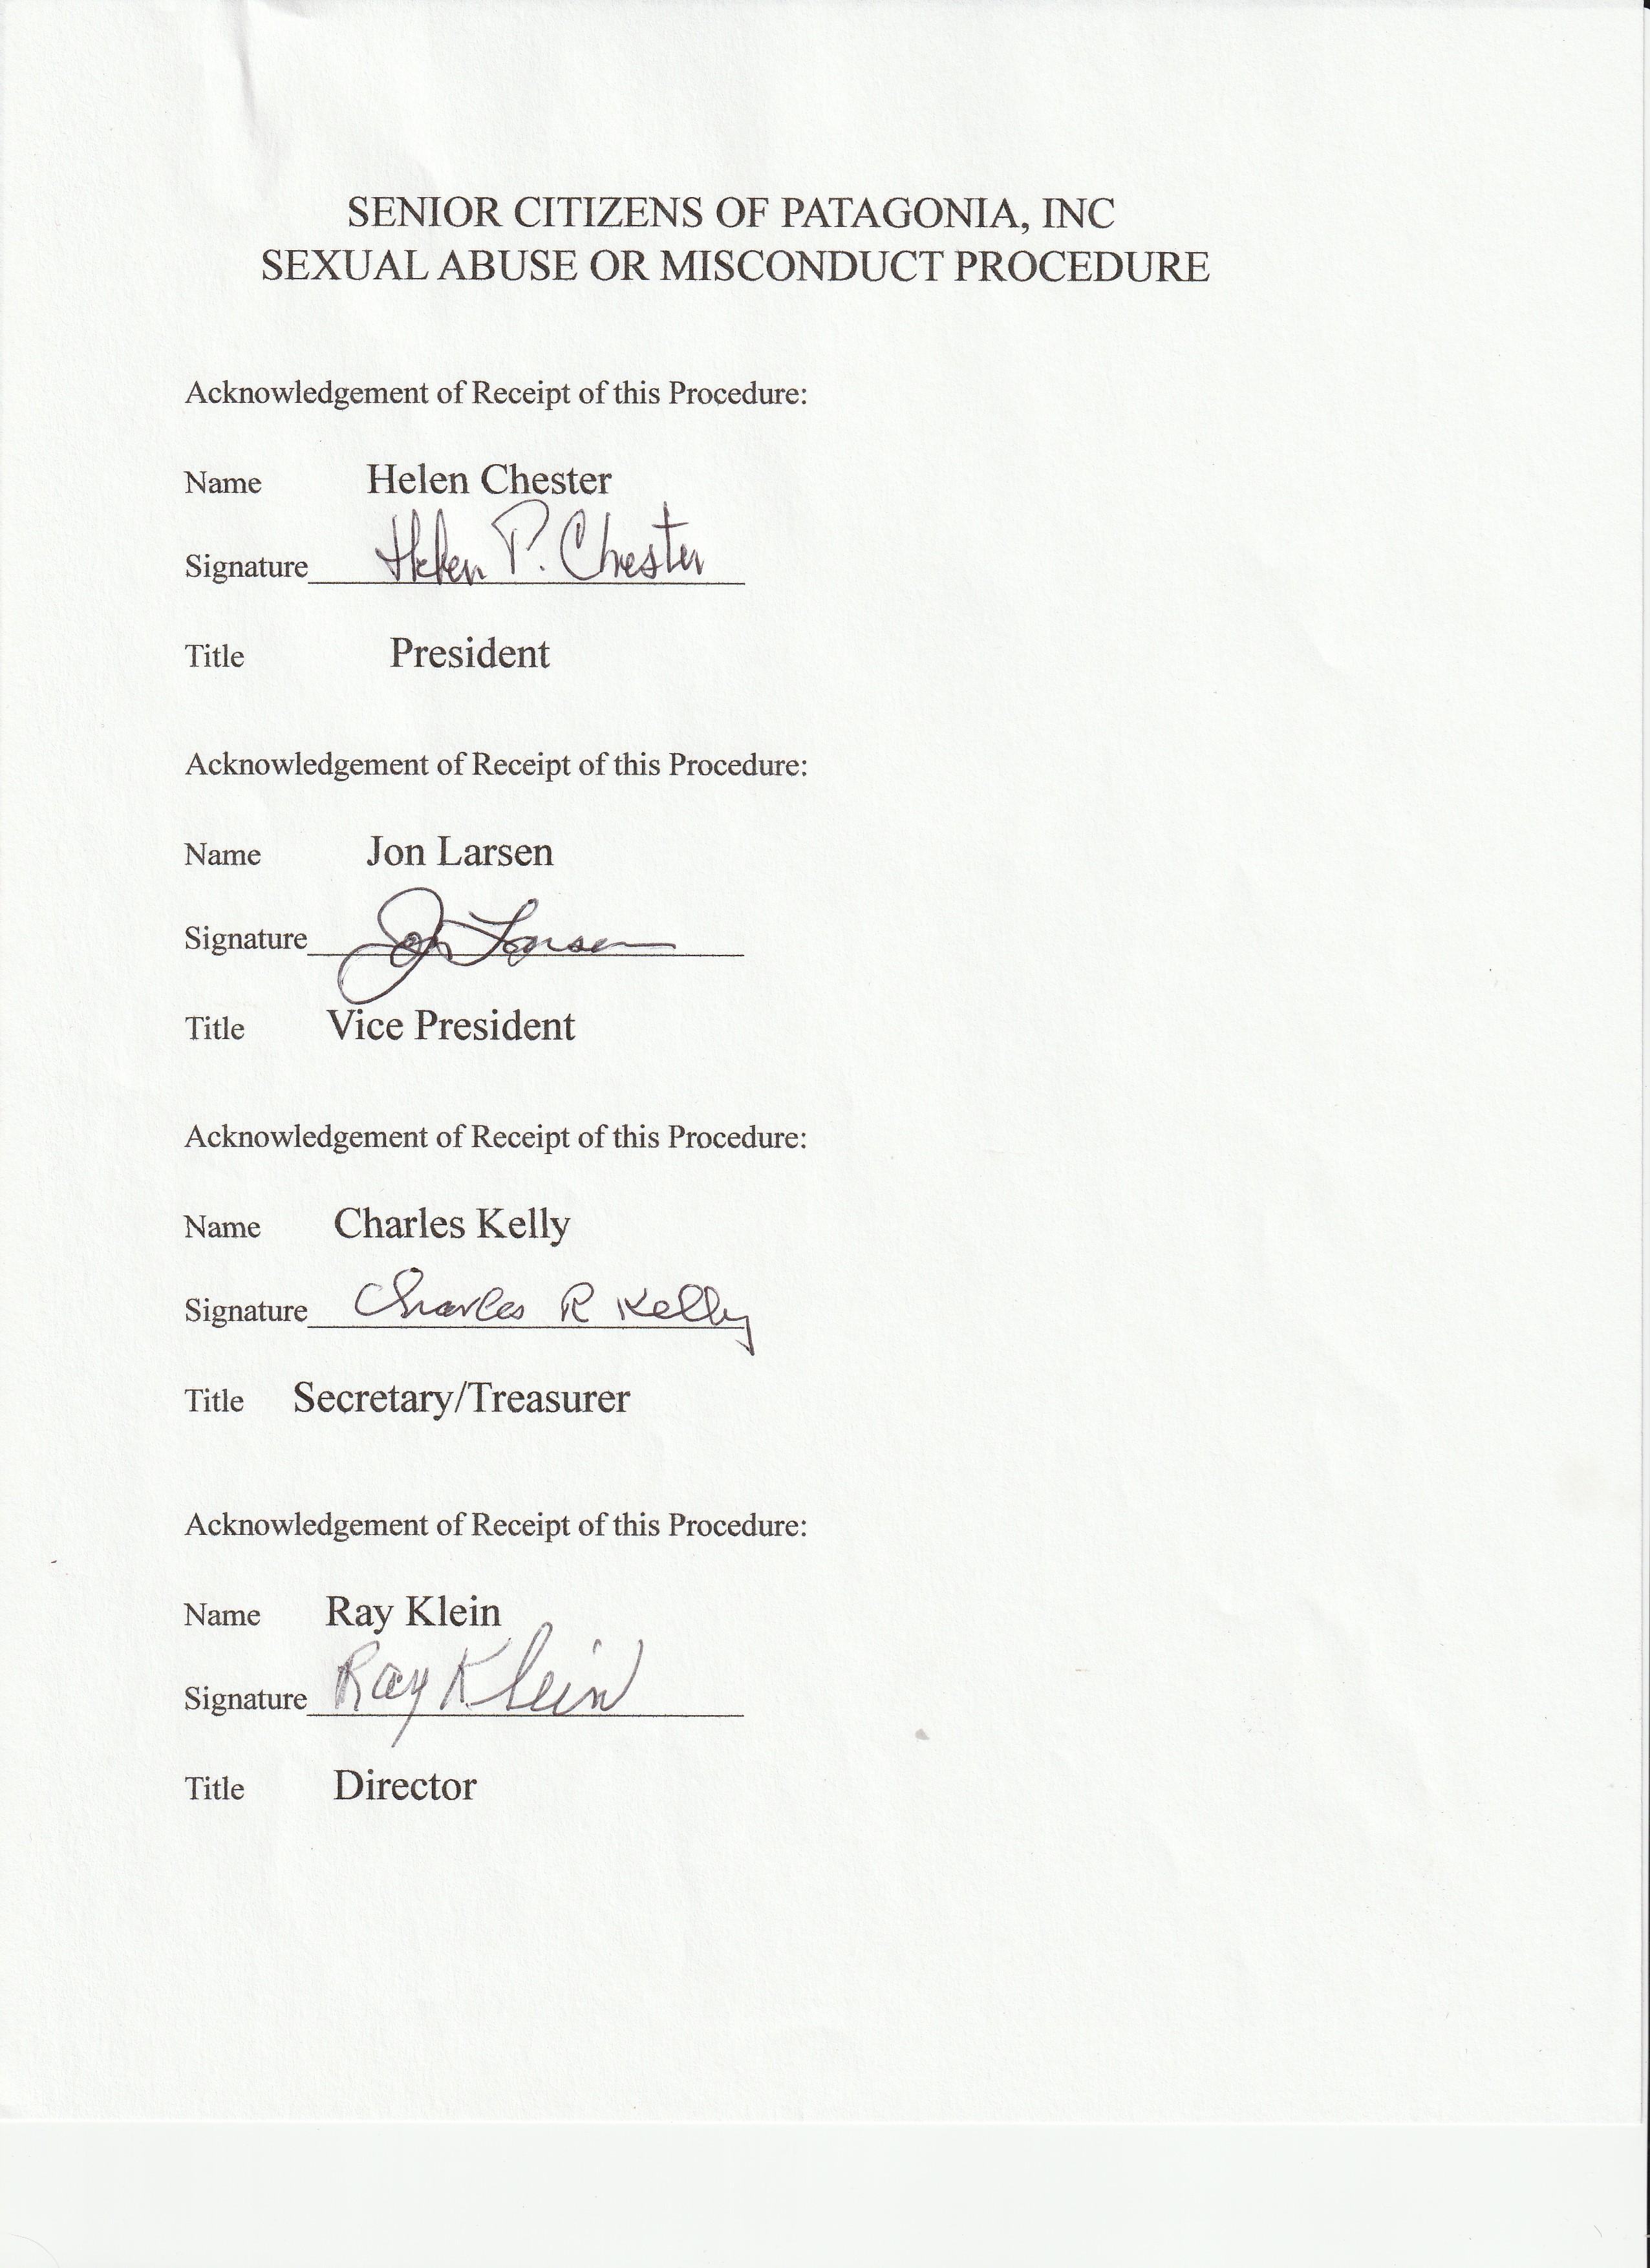 SENIOR CITIZENS OF PATAGONIA, INC
SEXUAL ABUSE OR MISCONDUCT PROCEDURE
Acknowledgement of Receipt of this Procedure:
Name Helen Chester
Signature Helen P. Chester
Title President
Acknowledgement of Receipt of this Procedure:
Name Jon Larsen
Signature Jon Larsen
Title Vice President
Acknowledgement of Receipt of this Procedure:
Name Charles Kelly
Signature Charles R Kelly
Title Secretary/Treasurer
Acknowledgement of Receipt of this Procedure:
Name Ray Klein
Signature Ray Klein
Title Director